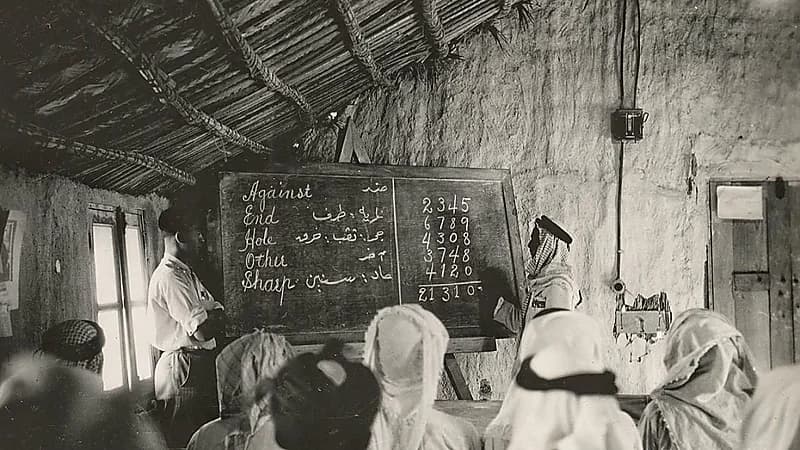 Against ضد
End : طرف
Hole : ثقب :
Other
Sharp حاد : سنين
2345
6789
4308
3748
4120
21310